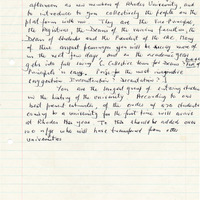 afternoon as new members of Rhodes University and
to introduce to you collectively the people on the
platform with me. They are the Vice-Principal,
the Registrar, the Deans of the various faculties, the
Deans of Students and the President of the SRC. Many
of these august personages you will be seeing more of
in the next few days and as the academic year
gets into full swing. (Collective noun for Deans
Principals is
exaggeration
You are the largest group of entering students
in the history of the University. According to our
best present estimates of the order of 950 students
coming to a university for the first time will arrive
at Rhodes this year. To this should be added over
100 who will have transferred from other
universities